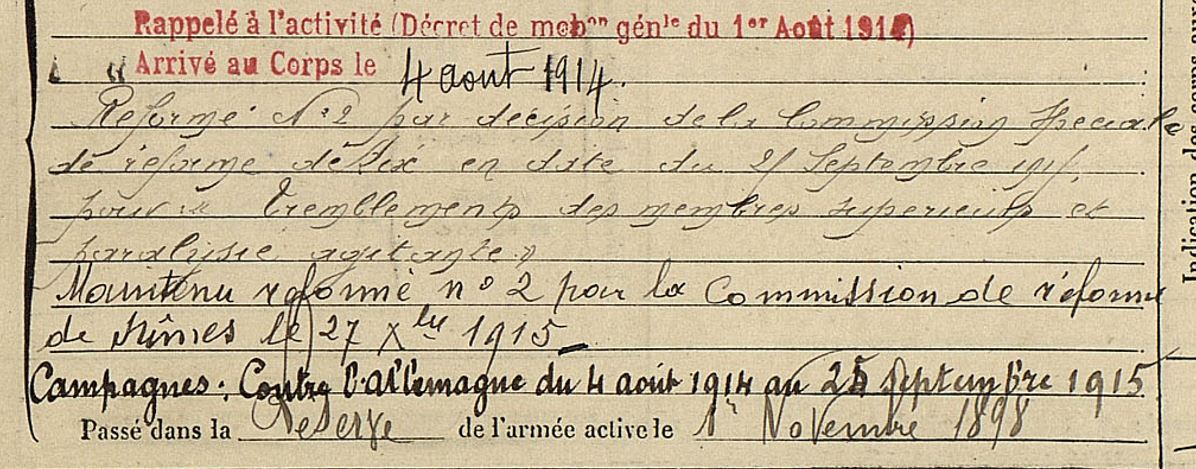 Rappelé à l'activité (Décret de mobon génle du 1er Août 1914)
Arrivé au Corps le 4 aout 1914.
Reformé N°2 par décision de la Commission Speciale
de réforme de Aix en date du 25 Septembre 1915,
pour « tremblements des membres superieurs et
paralysie agitante »
Maintenu réformé n° 2 par la Commission de réforme
de Nîmes le 27 Xbre 1915
Campagnes : Contre l'Allemagne du 4 août 1914 au 25 Septembre 1915
Passé dans la Reserve de l'armée active le 1r Novembre 1898
Indication des corps